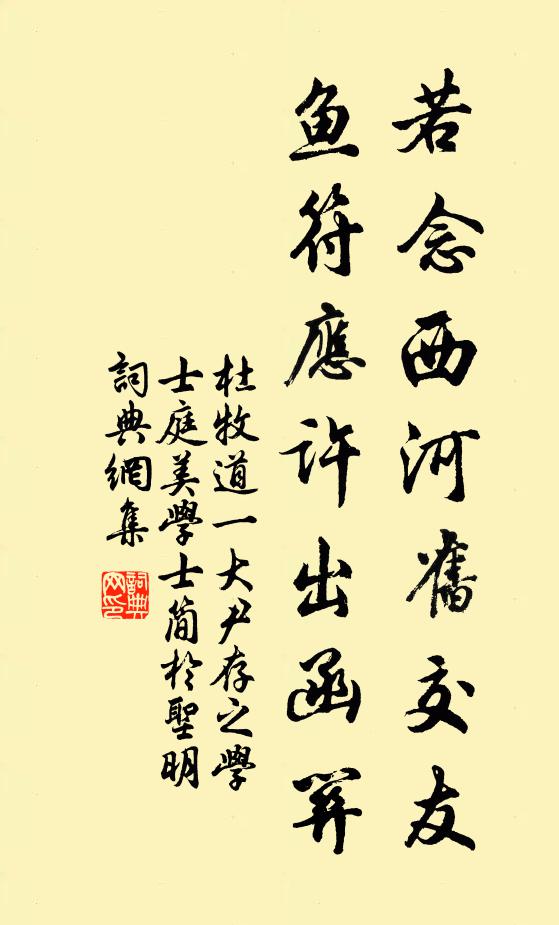 若念西河舊交友
鱼符應许出函関
杜牧道一大尹存之學
士庭美學士简於聖明
詞典網集
詞典网印